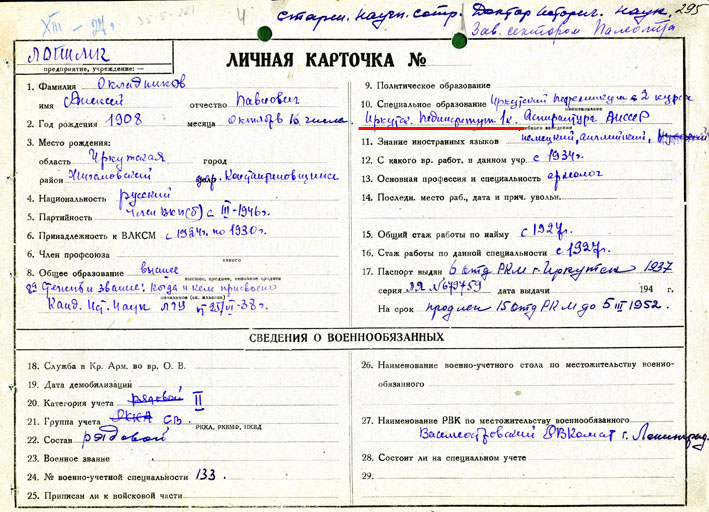 XIII - 27г.
35-5-221
4
Старш. Научн. сотр. Доктор историч. наук
295
Зав. сектором Палеолита
ЛОИИМК
предприятие, учреждение: —
ЛИЧНАЯ КАРТОЧКА №
1. Фамилия Окладников
имя Алексей отчество Павлович
2. Год рождения 1908 месяца октябрь 16 числа
3. Место рождения:
область Иркутская город
район Жигаловский дер. Константиновщина
4. Национальность русский
5. Партийность Член ВКП(б) с III-1946г.
6. Принадлежность к ВЛКСМ с 1924г. по 1930г.
6. Член профсоюза
какого
8. Общее образование высшее
высшее, среднее, неполное среднее
8а Степень и звание: когда и кем присвоено
начальное (ск. классов)
Канд. Ист. Наук ЛГУ от 25/VI-38г.
9. Политическое образование
10. Специальное образование Иркутский 2 курса
наименование
Иркутск. Пединститут 1к. Аспирантура
учебного заведения
11. Знание иностранных языков немецкий, английский,
12. С какого вр. работ. в данном учр. с 1934г.
13. Основная профессия и специальность археолог
14. Последн. место раб., дата и прич. увольн.
15. Общий стаж работы по найму с 1927г.
16. Стаж работы по данной специальности с 1927г.
17. Паспорт выдан 6 отд РКМ г. Иркутск 1937
серия № 679759 дата выдачи 194 г.
На срок продлен 15 отд РКМ до 5 III 1952.
СВЕДЕНИЯ О ВОЕННООБЯЗАННЫХ
18. Служба в Кр. Арм. во вр. О. В.
19. Дата демобилизации
20. Категория учета рядовой II
21. Группа учета РККА СВ.
РККА, РКВМФ, НКВД
22. Состав рядовой
23. Военное звание
24. № военно-учетной специальности 133.
25. Приписан ли к войсковой части
26. Наименование военно-учетного стола по местожительству военно-
обязанного
27. Наименование РВК по местожительству военнообязанного
Василеостровский РВКомат г. Ленинград.
28. Состоит ли на специальном учете
29.